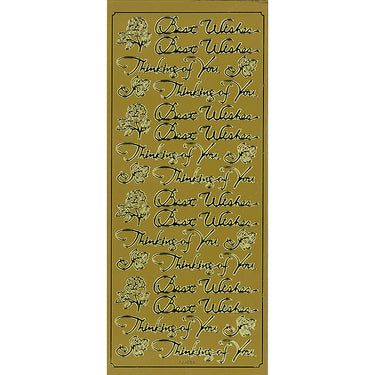 Best Wishes
Best Wishes
Thinking of You
Thinking of You
Best Wishes
Best Wishes
Thinking of You
Thinking of You
Best Wishes
Best Wishes
Thinking of You
Thinking of You
Best Wishes
Best Wishes
Thinking of You
Thinking of You